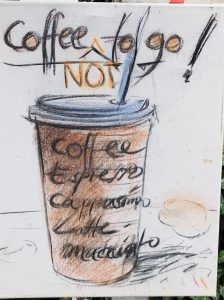 Coffee to go!
NOT
Coffee
Espresso
Cappucino
Latte-